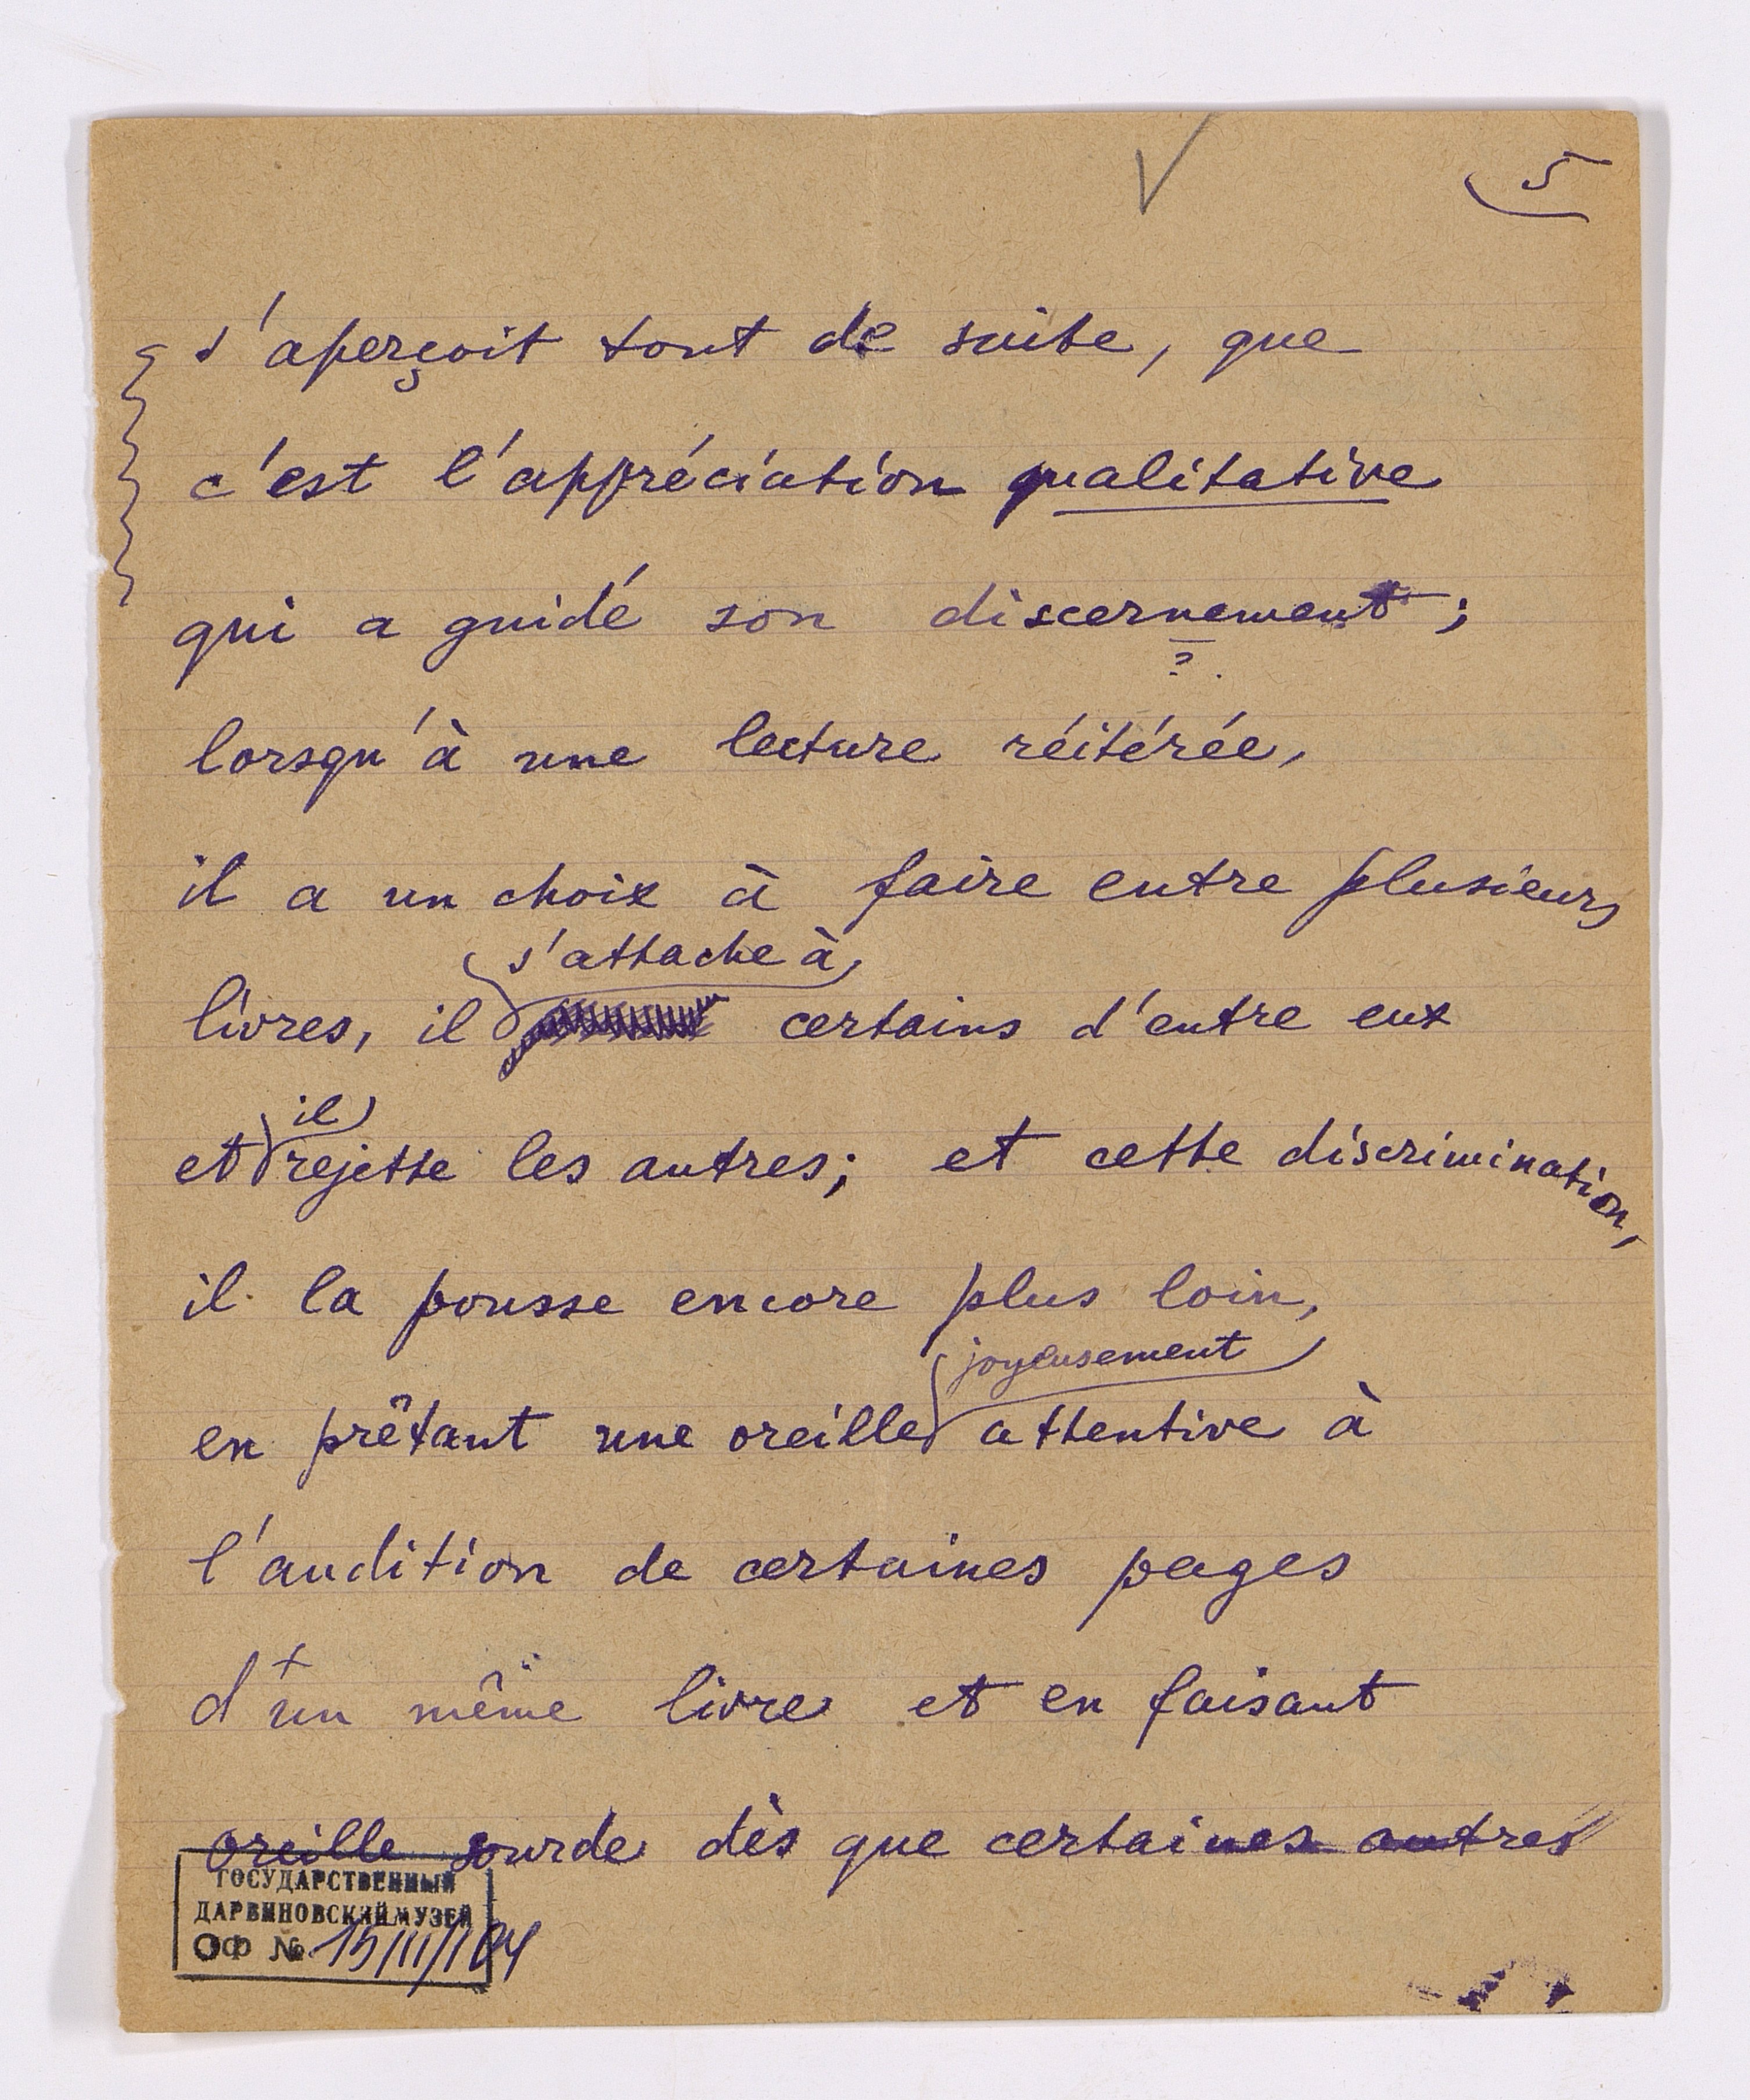 5
s'aperçoit tout de suite, que
c'est l'appréciation qualitative
qui a guidé son discernement;
?
lorsqu'à une lecture réitérée,
il a un choix à faire entre plusieurs
s'attache à
livres, il certains d'entre eux
il
et rejette les autres; et cette discrimination,
il la pousse encore plus loin,
joyeusement
en prêtant une oreille attentive à
l'audition de certaines pages
d'un même livre et en faisant
oreille sourde dès que certaines autres
ГОСУДАРСТВЕННЫЙ
ДАРВИНОВСКИЙ МУЗЕЙ
ОФ №